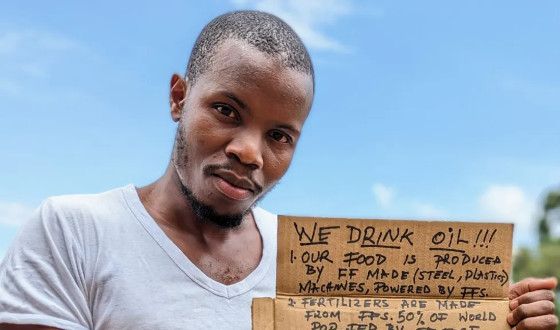 WE DRINK OIL!!!
1. OUR FOOD IS PRODUCED
BY FF MADE (STEEL, PLASTIC)
MACHINES, POWERED BY FFS.
2. FERTILIZERS ARE MADE
FROM FFS. 50% OF WORLD
POP FED BY